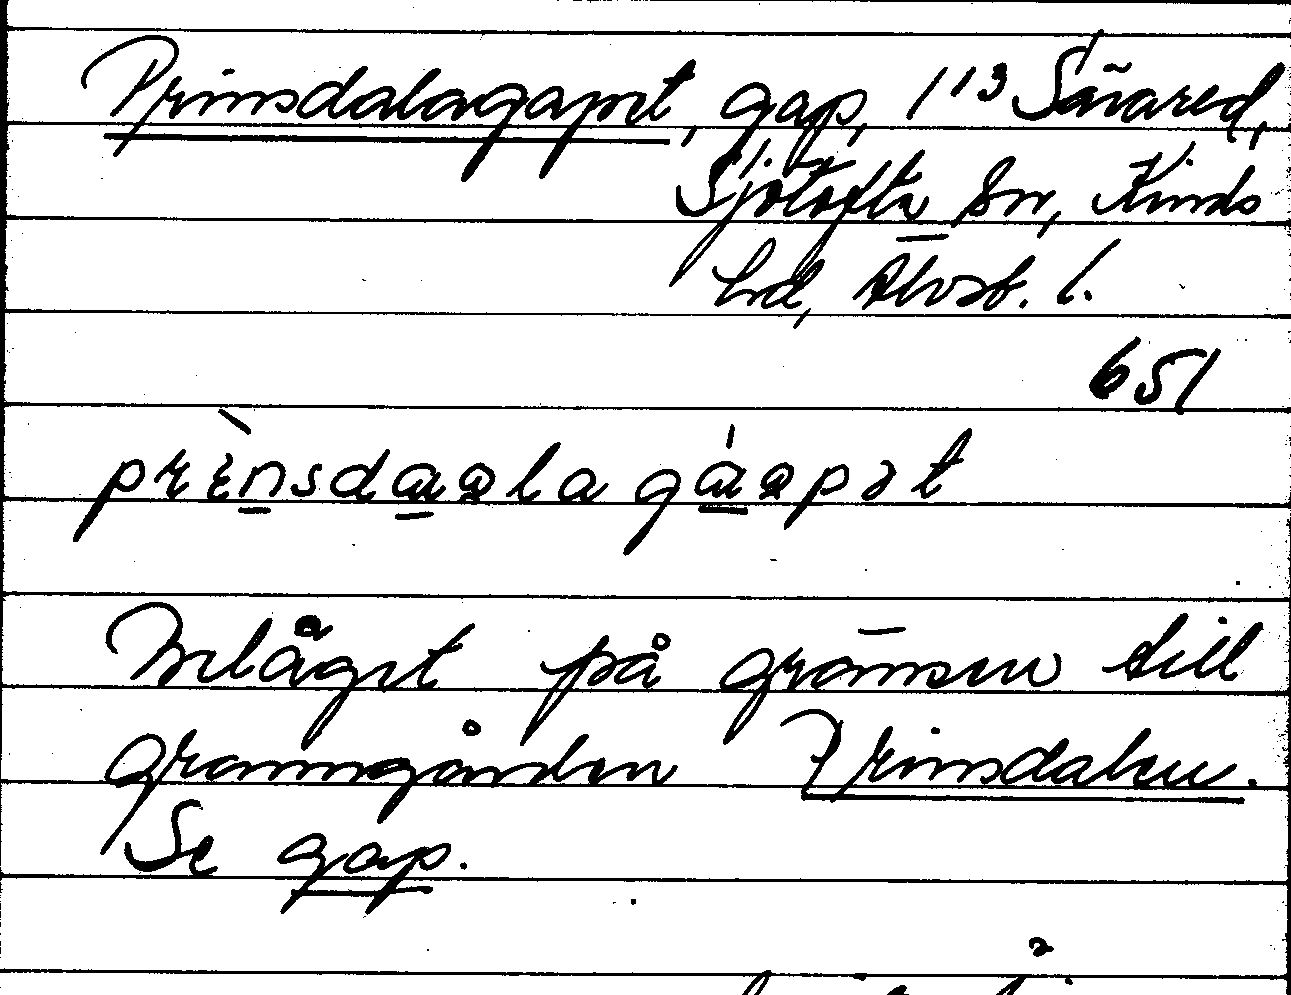 Prinsdalagapet, gap, 1¹³ Sävared,
Sjötofta sn, Kinds
hd, Älvsb. l.
651
prìnsdaala gáapət
Beläget på gränsen till
granngården Prinsdalen.
Se gap.